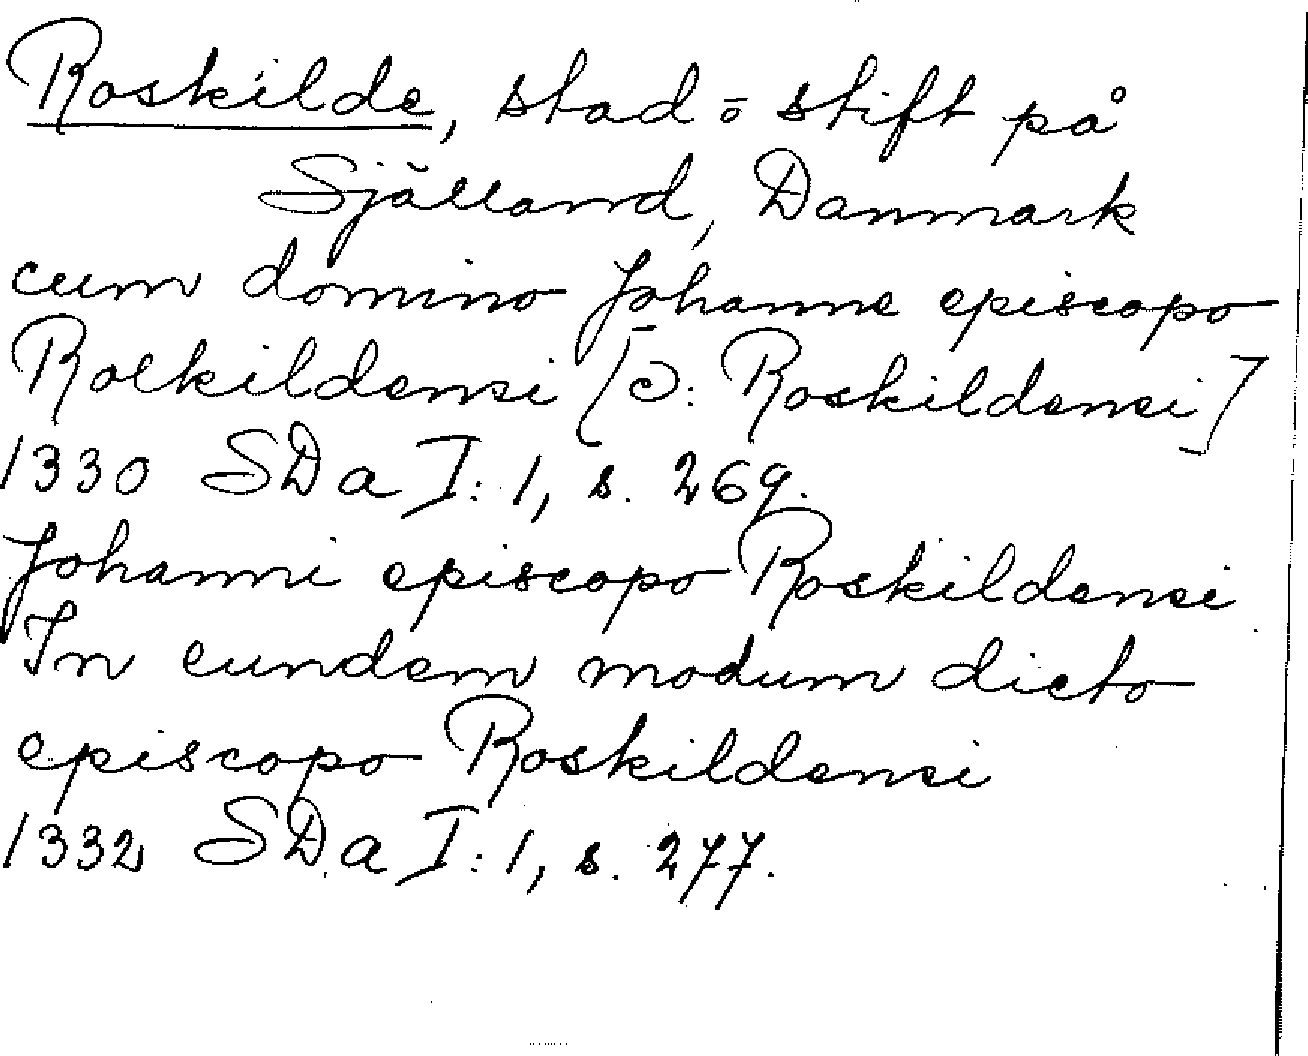 Roskilde, stad ō stift på
Själland, Danmark
cum domino Johanne episcopo
Rolkildensi [ɔ: Roskildensi]
1330 SDa I:1, s. 269.
Johanni episcopo Roskildensi
In eundem modum dicto
episcopo Roskildensi
1332 SDa I:1, s. 277.